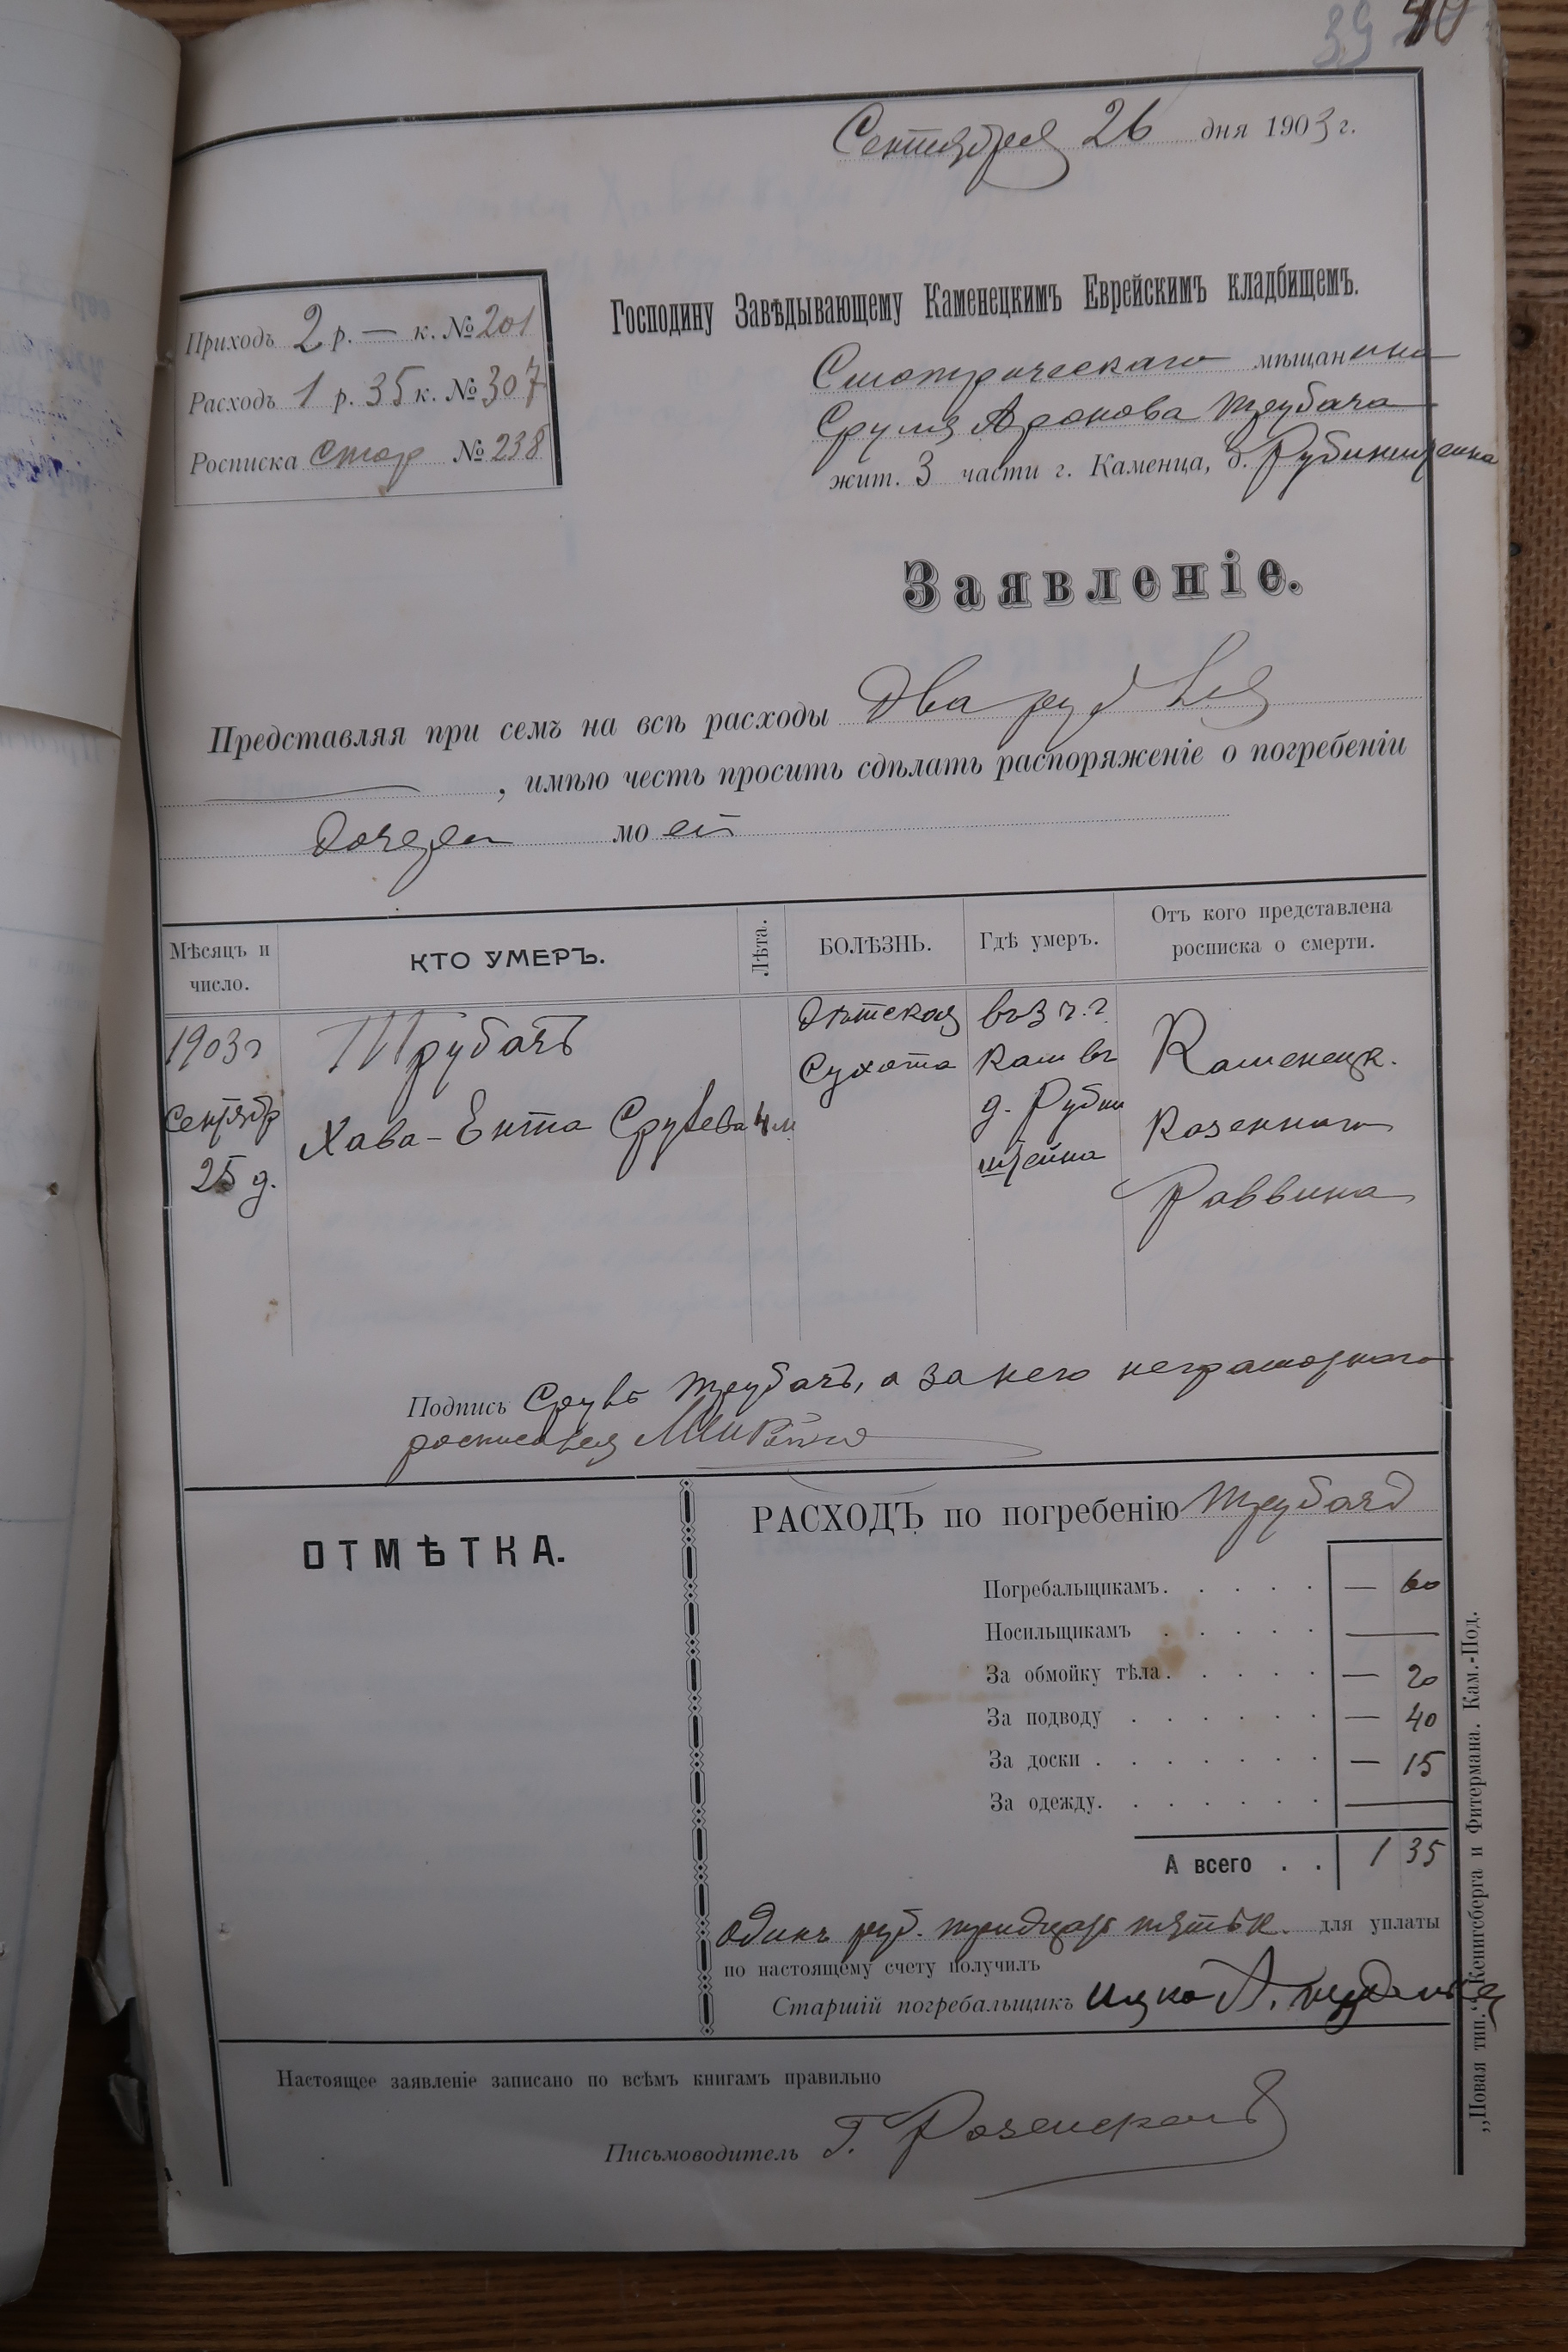 39 40
Сентября 26 дня 1903 г.
Приходъ 2 р. — к. № 201
Расходъ 1 р. 35 к. № 307
Росписка стор № 238
Господину Завѣдывающему Каменецкимъ Еврейскимъ кладбищемъ.
Смотрическаго мѣщанина
Сруля Аронова Трубача
жит. 3 части г. Каменца, д. Рубинштейна
Заявленіе.
Представляя при семъ на всѣ расходы Два рубля
, имѣю честь просить сдѣлать распоряженіе о погребеніи
Дочери моей
Мѣсяцъ и число.
КТО УМЕРЪ.
Лѣта.
БОЛѢЗНЬ.
Гдѣ умеръ.
Отъ кого представлена росписка о смерти.
1903 г
Сентябр
25 д.
Трубачъ
Хава-Ента Срулева
4 м
Дѣтская
Сухота
въ 3 ч. г.
Кам въ
д. Рубин
штейна
Каменецк.
Казеннаго
Раввина
Подпись Сруль Трубачъ, а за него неграмотнаго
росписался
ОТМѢТКА.
РАСХОДЪ по погребенію Трубачъ
Погребальщикамъ. — 60
Носильщикамъ —
За обмойку тѣла. — 20
За подводу — 40
За доски — 15
За одежду. —
А всего 1 35
Одинъ руб. тридцать пять к. для уплаты
по настоящему счету получилъ
Старшій погребальщикъ Ицко А.
Настоящее заявленіе записано по всѣмъ книгамъ правильно
Письмоводитель Г.
„Новая тип.“ Кенигсберга и Фитермана. Кам.-Под.